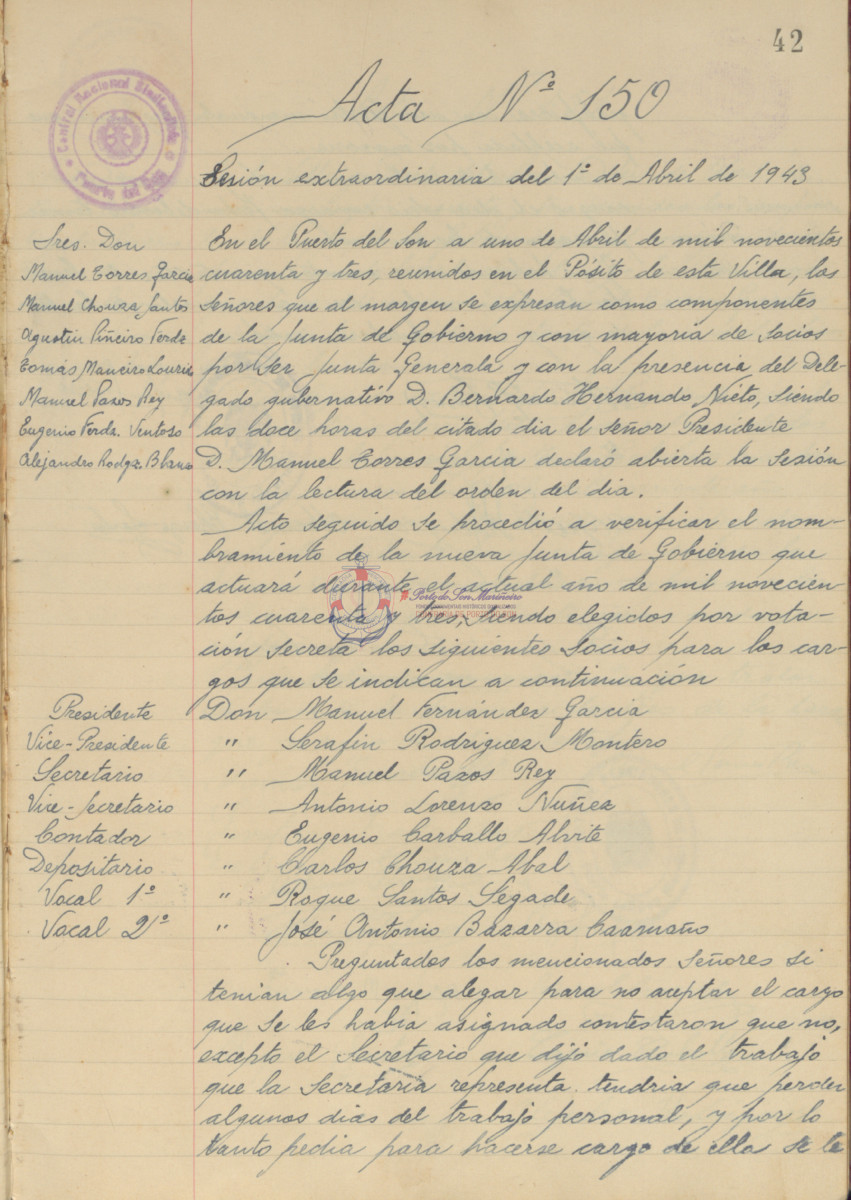 42
Acta Nº 150
Central Nacional Sindicalista
Puerto del Son
Sesión extraordinaria del 1º de Abril de 1943
Sres. Don
Manuel Torres Garcia
Manuel Chouza Santos
Agustin Piñeiro Ferdz
Tomás Maneiro Louriño
Manuel Pazos Rey
Eugenio Ferdz. Ventoso
Alejandro Rodgz. Blanco
En el Puerto del Son a uno de Abril de mil novecientos
cuarenta y tres, reunidos en el Pósito de esta Villa, los
Señores que al margen se expresan como componentes
de la Junta de Gobierno y con mayoria de socios
por ser Junta Generala y con la presencia del Dele-
gado gubernativo D. Bernardo Hernando Nieto, siendo
las doce horas del citado dia el señor Presidente
D. Manuel Torres Garcia declaró abierta la sesión
con la lectura del orden del dia.
Acto seguido se procedió a verificar el nom-
bramiento de la nueva Junta de Gobierno que
actuará durante el actual año de mil novecien-
tos cuarenta y tres, siendo elegidos por vota-
ción secreta los siguientes socios para los car-
gos que se indican a continuación
Porto do Son Mariñeiro
Presidente Don Manuel Fernández Garcia
Vice-Presidente " Serafin Rodriguez Montero
Secretario " Manuel Pazos Rey
Vice-Secretario " Antonio Lorenzo Nuñez
Contador " Eugenio Carballo Alvite
Depositario " Carlos Chouza Abal
Vocal 1º " Roque Santos Segade
Vocal 2º " José Antonio Bazarra Caamaño
Preguntados los mencionados señores si
tenian algo que alegar para no aceptar el cargo
que se les habia asignado contestaron que no,
excepto el Secretario que dijo dado el trabajo
que la Secretaria representa tendria que perder
algunos dias del trabajo personal, y por lo
tanto pedia para hacerse cargo de ella se le